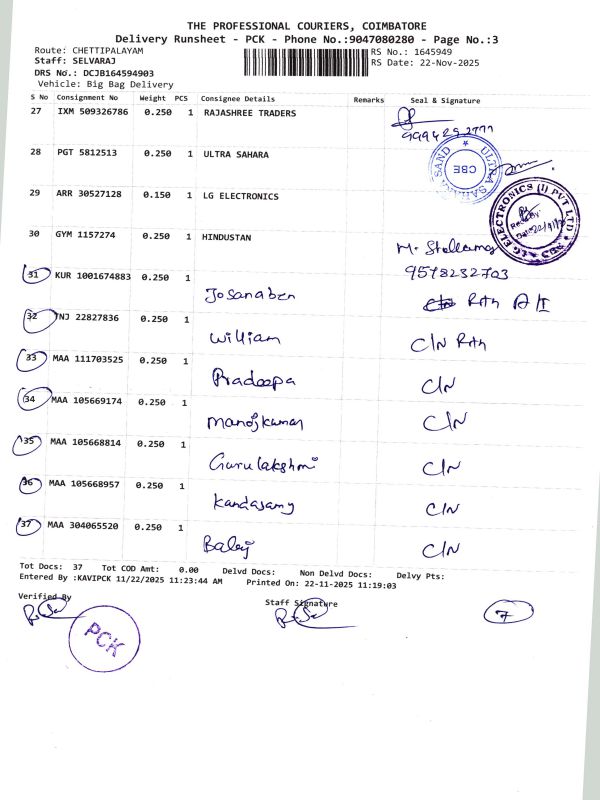 THE PROFESSIONAL COURIERS, COIMBATORE
Delivery Runsheet - PCK - Phone No.:9047080280 - Page No.:3
Route: CHETTIPALAYAM
RS No.: 1645949
Staff: SELVARAJ
RS Date: 22-Nov-2025
DRS No.: DCJB164594903
Vehicle: Big Bag Delivery
S No Consignment No Weight PCS Consignee Details Remarks Seal & Signature
27 IXM 509326786 0.250 1 RAJASHREE TRADERS
28 PGT 5812513 0.250 1 ULTRA SAHARA
CBE
29 ARR 30527128 0.150 1 LG ELECTRONICS
LG ELECTRONICS (I) PVT LTD
30 GYM 1157274 1 0.250 HINDUSTAN
9578232703
31 KUR 1001674883 0.250 1 Josanaben
32 TNJ 22827836 0.250 1 William C/N
33 MAA 111703525 0.250 1 Pradeepa C/N
34 MAA 105669174 0.250 1 Manojkumar C/N
35 MAA 105668814 0.250 1 Gurulakshmi C/N
36 MAA 105668957 0.250 1 Kandasamy C/N
37 MAA 304065520 0.250 1 Balaji C/N
Tot Docs: 37 Tot COD Amt: 0.00 Delvd Docs: Non Delvd Docs: Delvy Pts:
Entered By :KAVIPCK 11/22/2025 11:23:44 AM Printed On: 22-11-2025 11:19:03
Verified By
Staff Signature
7
PCK